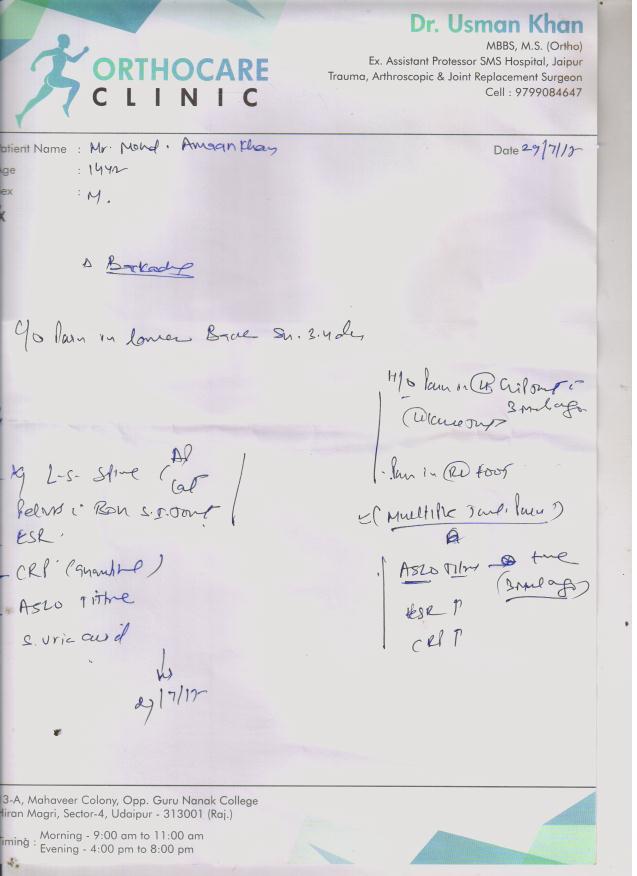 Dr. Usman Khan
MBBS, M.S. (Ortho)
Ex. Assistant Professor SMS Hospital, Jaipur
Trauma, Arthroscopic & Joint Replacement Surgeon
Cell : 9799084647
ORTHOCARE
CLINIC
atient Name : Mr. Mohd. Amaan Khan
Date 29/7/12
ge : 14yr
ex : M.
Δ Backache
C/o Pain in lower Back
H/o Pain in
3 months ago
L-S Spine AP Lat
Pelvis
ESR
CRP (Quantitative)
ASLO Titre
S. uric acid
29/7/12
Pain in foot
(Multiple Joint Pain)
ASLO Titre +ve
(3 months ago)
ESR ↑
CRP ↑
3-A, Mahaveer Colony, Opp. Guru Nanak College
Hiran Magri, Sector-4, Udaipur - 313001 (Raj.)
iming : Morning - 9:00 am to 11:00 am
Evening - 4:00 pm to 8:00 pm